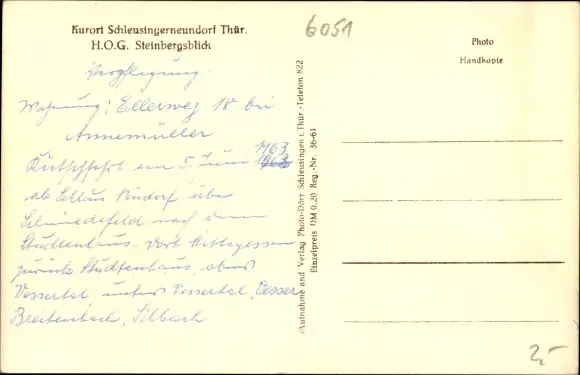 Kurort Schleusingerneundorf Thür.
H.O.G. Steinbergsblick
6051
Photo
Handkopie
Verpflegung.
Wohnung: Ellerweg 18 bei
Annemüller
1963
Kutschfahrt am 5. Juni 1962
ab Schleus Neudorf über
Schmiedefeld nach dem
Stuttenhaus. Dort Mittagessen
zurück Stuttenhaus, ober
Vessertal, unter Vessertal, Vesser
Breitenbach, Silbach
Aufnahme und Verlag Photo-Dörr Schleusingen i. Thür. -Telefon 822
Einzelpreis DM 0,20 Reg.-Nr. 36-61
2,-